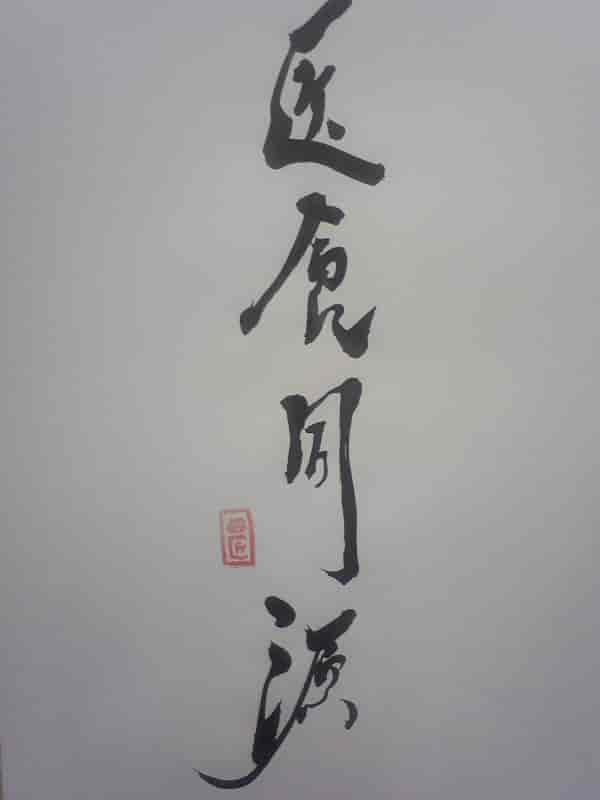 医食同源